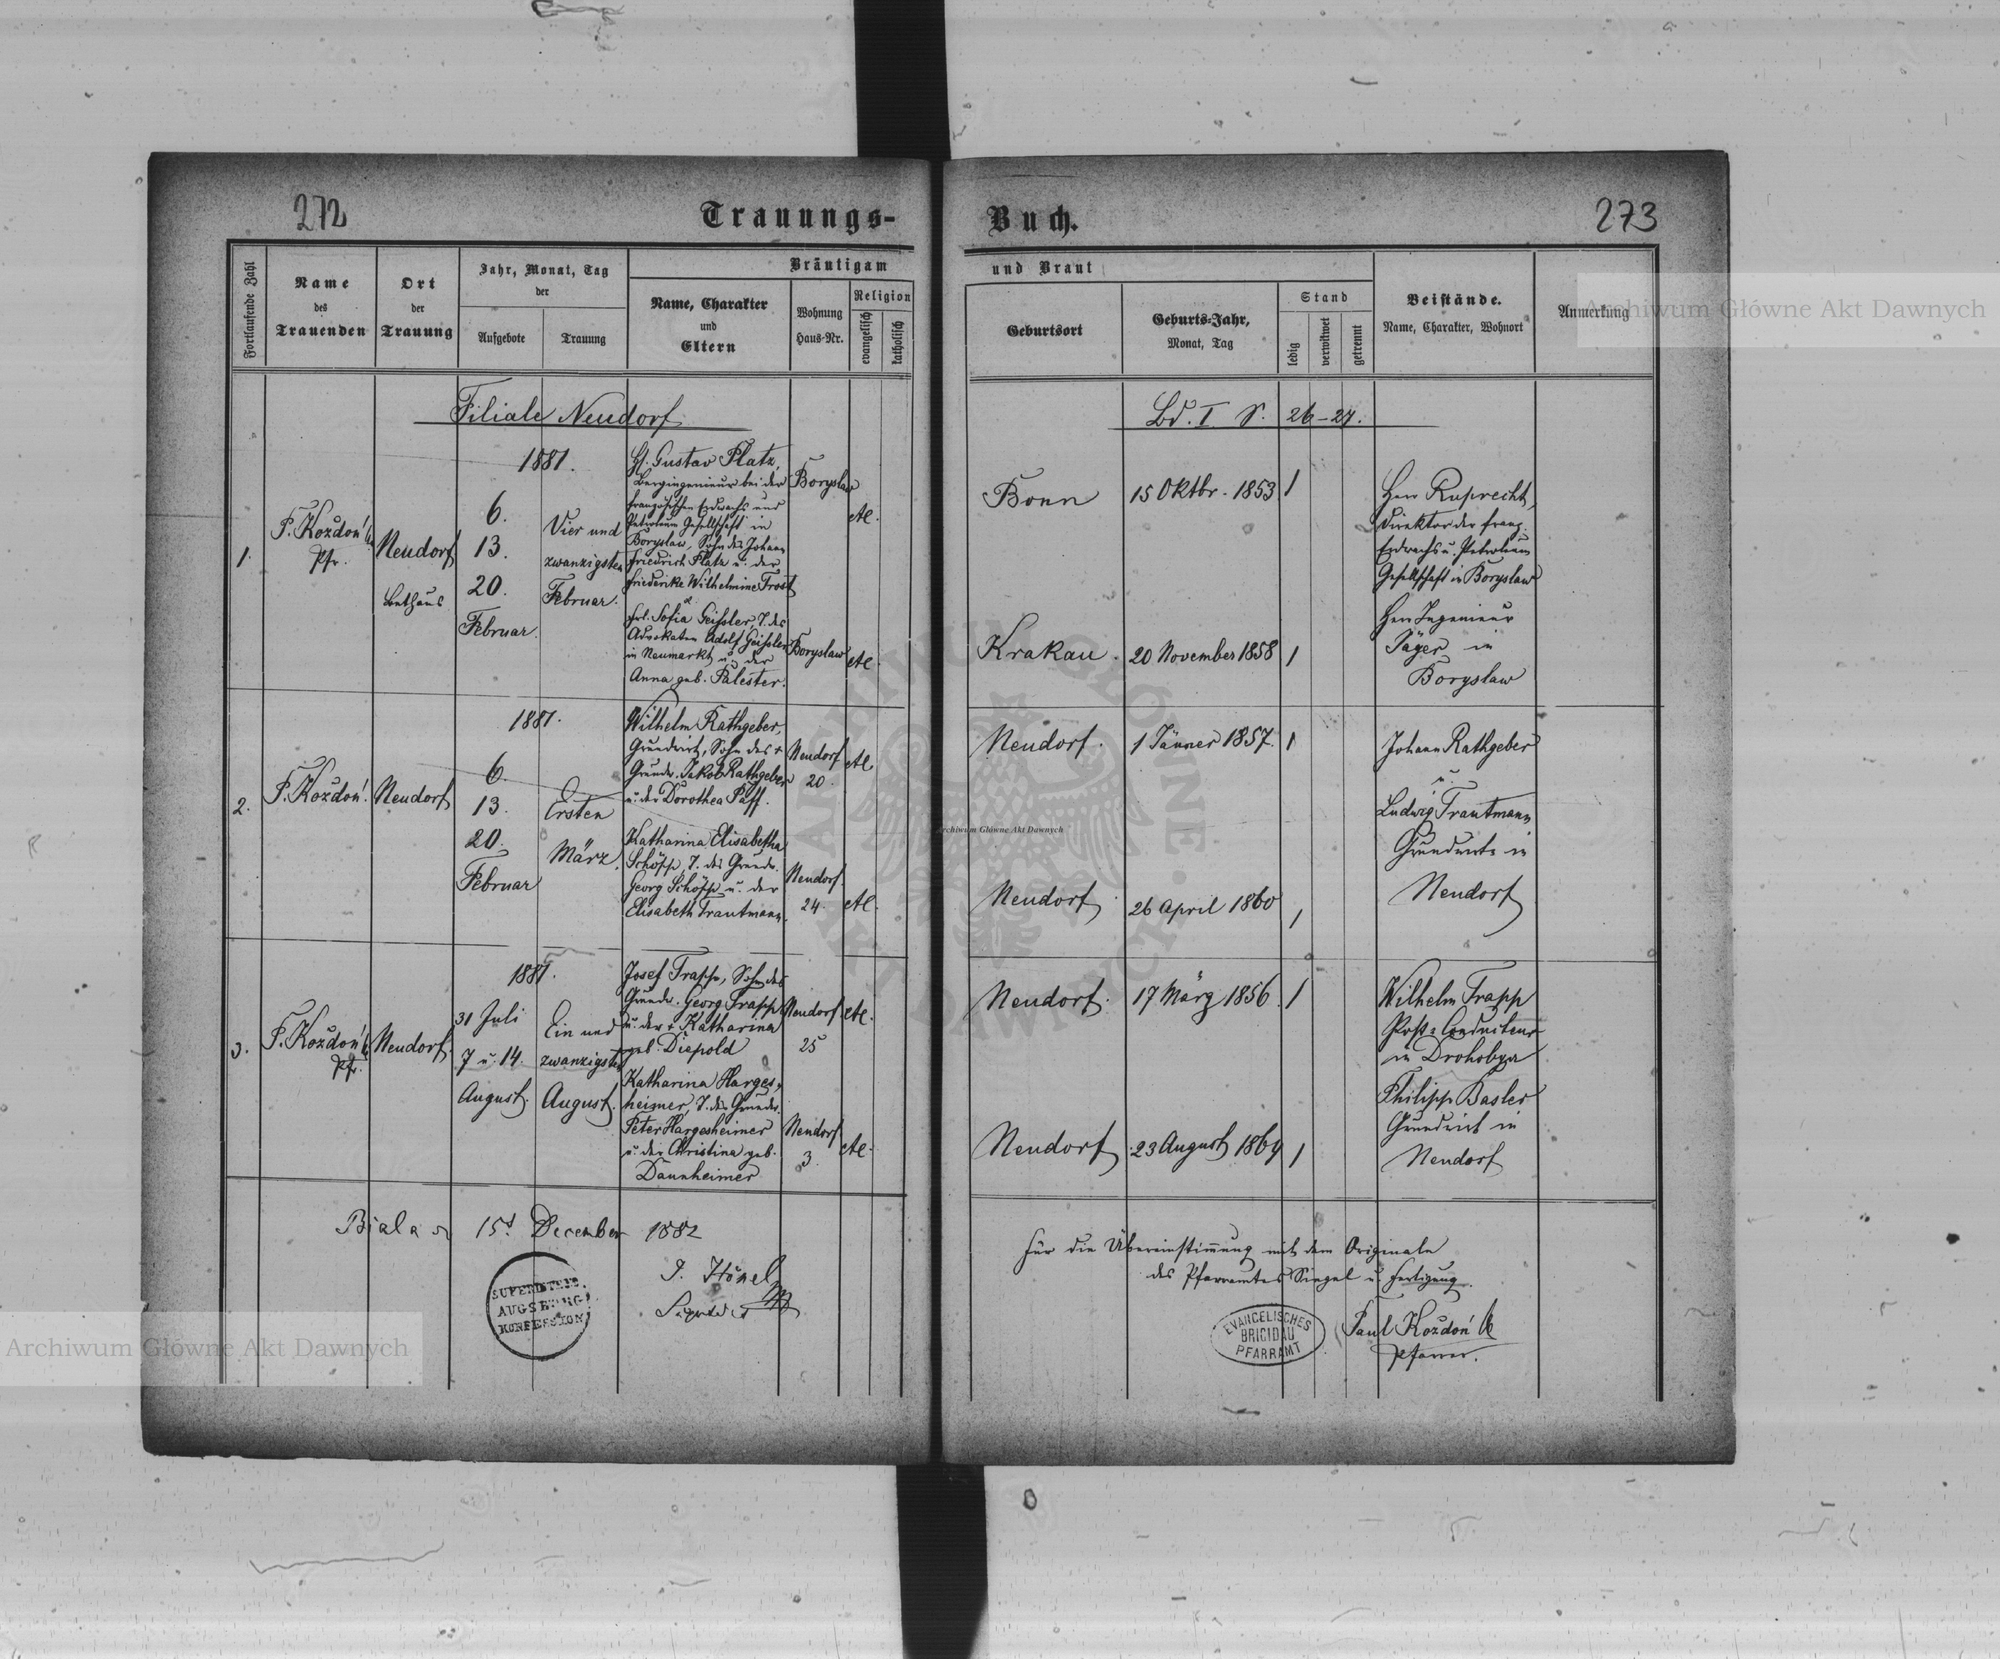 272
Trauungs-
Buch.
273
Fortlaufende Zahl
Name
des
Trauenden
Ort
der
Trauung
Jahr, Monat, Tag
der
Aufgebote
Trauung
Bräutigam
Name, Charakter
und
Eltern
Wohnung
Haus-Nr.
Religion
evangelisch
katholisch
und Braut
Geburtsort
Geburts-Jahr,
Monat, Tag
Stand
ledig
verwitwet
getrennt
Beistände.
Name, Charakter, Wohnort
Anmerkung
Filiale Neudorf
Bd. I S. 26-27.
1.
P. Kozdoń
Pfr.
Neudorf
Bethaus
1881.
6.
13.
20.
Februar.
Vier und
zwanzigsten
Februar.
H. Gustav Platz,
Bergingenieur bei der
französischen Erdwachs und
Petroleum Gesellschaft in
Boryslaw, Sohn des Johann
Friedrich Platz u. der
Friederike Wilhelmine Frost
&
Frl. Sofia Geissler, T. des
Advokaten Adolf Geissler
in Neumarkt u. der
Anna geb. Palester.
Boryslaw
AC.
Boryslaw
AC.
Bonn
15 Oktbr. 1853
1
Krakau.
20 November 1858
1
Herr Ruprecht,
Direktor der franz.
Erdwachs u. Petroleum
Gesellschaft in Boryslaw
Herr Ingenieur
Jäger in
Boryslaw
2.
P. Kozdoń.
Neudorf
1881.
6.
13.
20.
Februar
Ersten
März.
Wilhelm Rathgeber,
Grundwirt, Sohn des +
Grundw. Jakob Rathgeber
u. der Dorothea Paff.
Katharina Elisabetha
Schöpp, T. des Grundw.
Georg Schöpp u. der
Elisabeth Trautmann.
Neudorf
20.
AC
Neudorf.
24.
AC.
Neudorf.
1 Jänner 1857.
1
Neudorf.
26 April 1860
1
Johann Rathgeber
u.
Ludwig Trautmann
Grundwirte in
Neudorf
3.
P. Kozdoń
Pfr.
Neudorf.
1881.
31 Juli
7 u. 14.
August.
Ein und
zwanzigsten
August.
Josef Trapp, Sohn des
Grundw. Georg Trapp
u. der + Katharina
geb. Diepold
Katharina Harges-
heimer, T. des Grundw.
Peter Hargesheimer
u. der Christina geb.
Dannheimer
Neudorf
25
AC.
Neudorf
3.
AC.
Neudorf.
17 März 1856.
1
Neudorf
23 August 1864
1
Wilhelm Trapp
Post-Conducteur
in Drohobycz
Philipp Basler
Grundwirt in
Neudorf
Biala 15t December 1882
SUPERINTEND.
AUGSBURG.
KONFESSION
Für die Übereinstimmung mit dem Originale
des Pfarramtes Siegel u. Fertigung.
EVANGELISCHES
BRIGIDAU
PFARRAMT
Paul Kozdoń
Pfarrer.
Archiwum Główne Akt Dawnych
Archiwum Główne Akt Dawnych
Archiwum Główne Akt Dawnych
ARCHIWUM GŁÓWNE AKT DAWNYCH